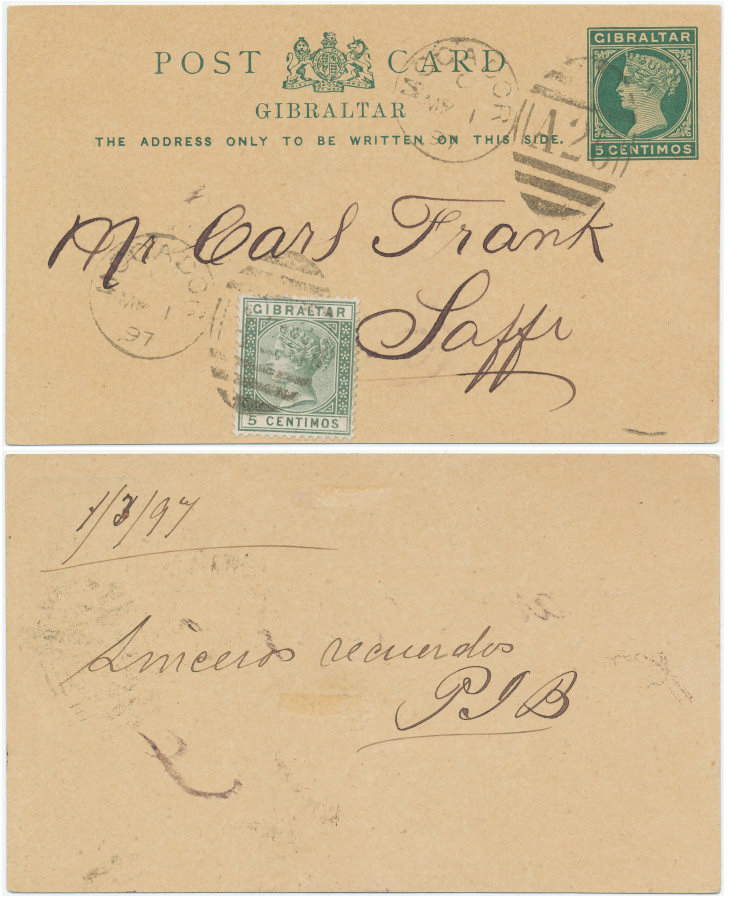 POST CARD
GIBRALTAR
THE ADDRESS ONLY TO BE WRITTEN ON THIS SIDE.
GIBRALTAR
5 CENTIMOS
MOGADOR
C
MR 1
97
A26
Mr Carl Frank
Saffi
MOGADOR
MR 1
97
GIBRALTAR
5 CENTIMOS
1/3/97
Sinceros recuerdos
PJB